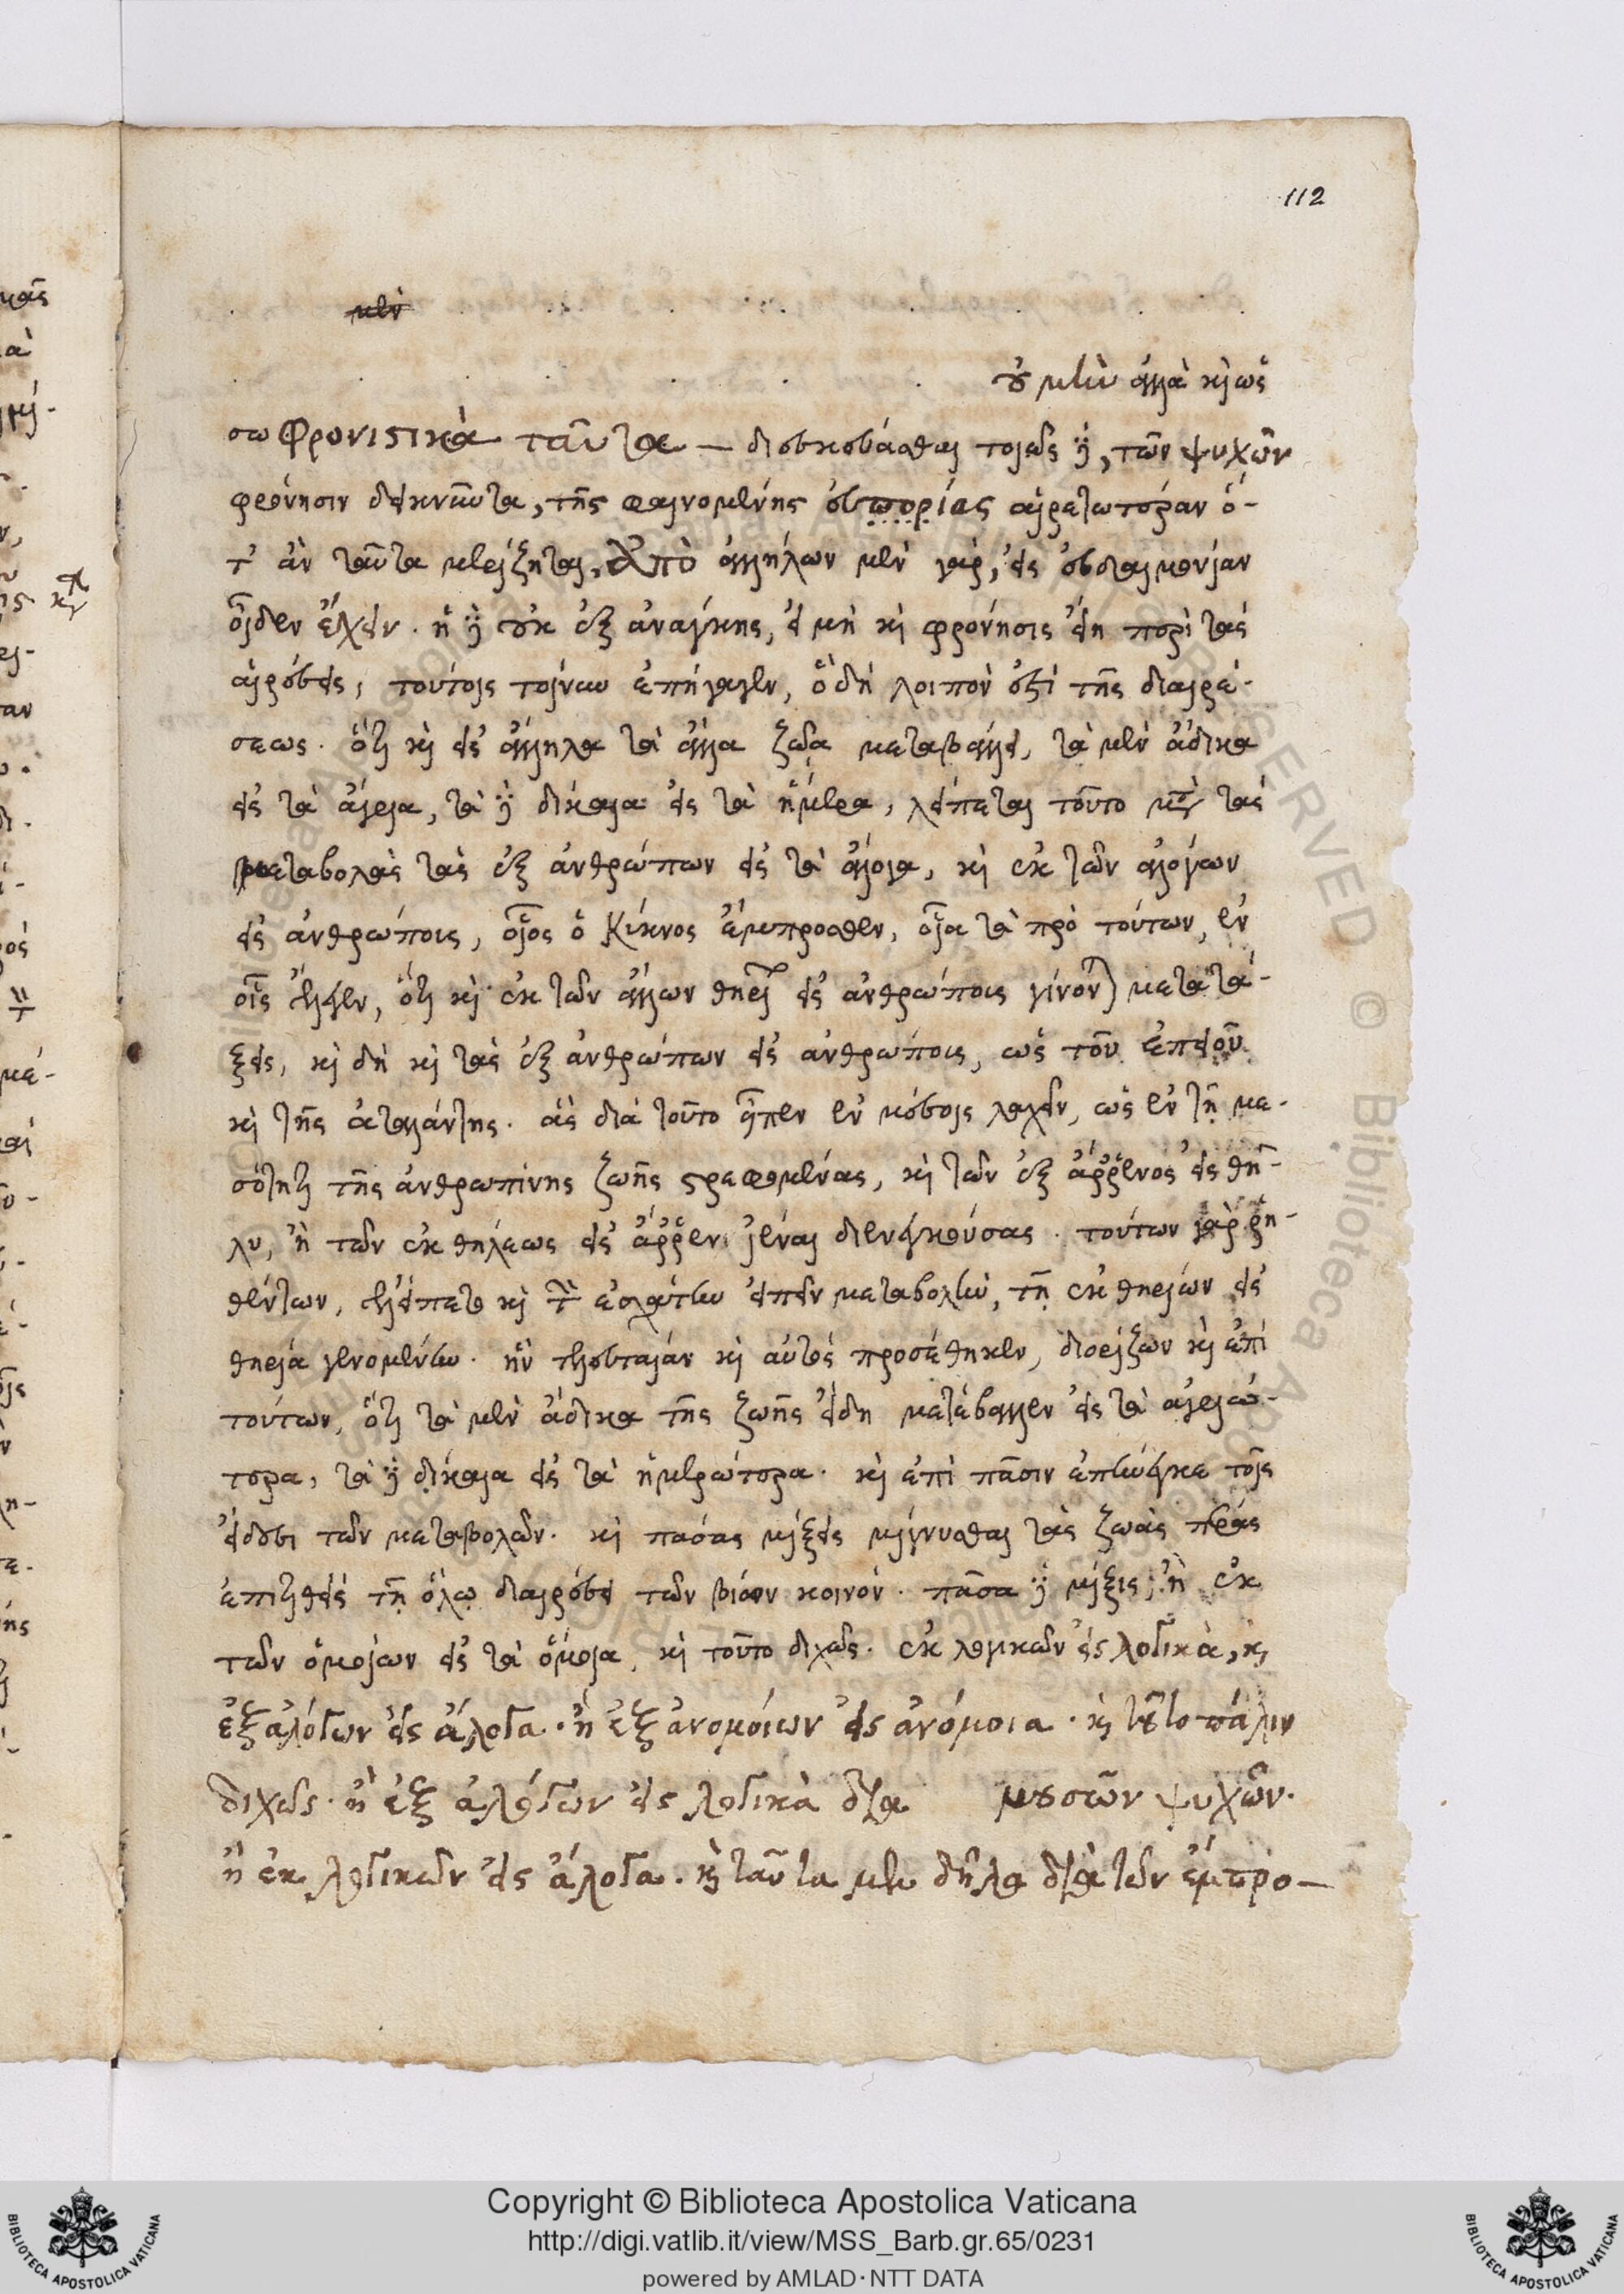 112
μὲν
οὐ μὴν ἀλλὰ καὶ ὡς
σωφρονιστικὰ ταῦτα — διευκοβάσθαι τοιῶσδε, τῶν ψυχῶν
φρόνησιν δεικνῦντα, τῆς φαινομένης εὐπορίας αἱρετωτέραν ὅ-
τ' ἂν ταῦτα μερίζηται, ἀπὸ ἀλλήλων μὲν γὰρ, εἰς εὐδαιμονίαν
οἶδεν ἕλκειν. ἢ δὲ οὐκ ἐξ ἀνάγκης, εἰ μὴ καὶ φρόνησις εἴη περὶ τὰς
αἱρέσεις, τούτοις τοίνυν ἐπήγαγεν, ὃ δὴ λοιπὸν ἐστὶ τῆς διαιρέ-
σεως. ὅτι καὶ εἰς ἄλληλα τὰ ἄλλα ζῷα μεταβάλλει, τὰ μὲν ἄδικα
εἰς τὰ ἄγρια, τὰ δὲ δίκαια εἰς τὰ ἥμερα, λείπεται τοῦτο μετὰ τὰς
μεταβολὰς τὰς ἐξ ἀνθρώπων εἰς τὰ ἄλογα, καὶ ἐκ τῶν ἀλόγων
εἰς ἀνθρώπους, οἷος ὁ Κύκνος ἔμπροσθεν, οἷα τὰ πρὸ τούτων, ἐν
οἷς ἔλεγεν, ὅτι καὶ ἐκ τῶν ἄλλων θηρίων εἰς ἀνθρώπους γίνονται μετατά-
ξεις, καὶ δὴ καὶ τὰς ἐξ ἀνθρώπων εἰς ἀνθρώπους, ὡς τοῦ ἐπειοῦ
καὶ τῆς ἀταλάντης. ἃς διὰ τοῦτο εἶπεν ἐν μέσοις λαχεῖν, ὡς ἐν τῇ με-
σότητι τῆς ἀνθρωπίνης ζωῆς στρεφομένας, καὶ τῶν ἐξ ἄῤῥενος εἰς θῆ-
λυ, ἢ τῶν ἐκ θήλεως εἰς ἄῤῥεν ἰέναι διενεγκούσας. τούτων γὰρ ῥη-
θέντων, ἐλείπετο καὶ τὴν ἐσχάτην εἰπεῖν μεταβολὴν, τὴν ἐκ θηρίων εἰς
θηρία γενομένην. ἣν τελευταίαν καὶ αὐτὸς προσέθηκεν, διορίζων καὶ ἐπὶ
τούτων, ὅτι τὰ μὲν ἄδικα τῆς ζωῆς εἴδη μετέβαλλεν εἰς τὰ ἀγριώ-
τερα, τὰ δὲ δίκαια εἰς τὰ ἡμερώτερα. καὶ ἐπὶ πᾶσιν ἐπήνεγκε τοῖς
εἴδεσι τῶν μεταβολῶν. καὶ πάσας μίξεις μίγνυσθαι τὰς ζωὰς πέρας
ἐπιτιθεὶς τῇ ὅλῃ διαιρέσει τῶν βίων κοινόν. πᾶσα δὲ μίξις, ἢ ἐκ
τῶν ὁμοίων εἰς τὰ ὅμοια, καὶ τοῦτο διχῶς. ἐκ λογικῶν εἰς λογικὰ, καὶ
ἐξ ἀλόγων εἰς ἄλογα. ἢ ἐξ ἀνομοίων εἰς ἀνόμοια. καὶ τοῦτο πάλιν
διχῶς. ἢ ἐξ ἀλόγων εἰς λογικὰ διὰ μουσῶν ψυχῶν.
ἢ ἐκ λογικῶν εἰς ἄλογα. καὶ ταῦτα μὲν δῆλα διὰ τῶν ἔμπρο—
Copyright © Biblioteca Apostolica Vaticana
http://digi.vatlib.it/view/MSS_Barb.gr.65/0231
powered by AMLAD · NTT DATA